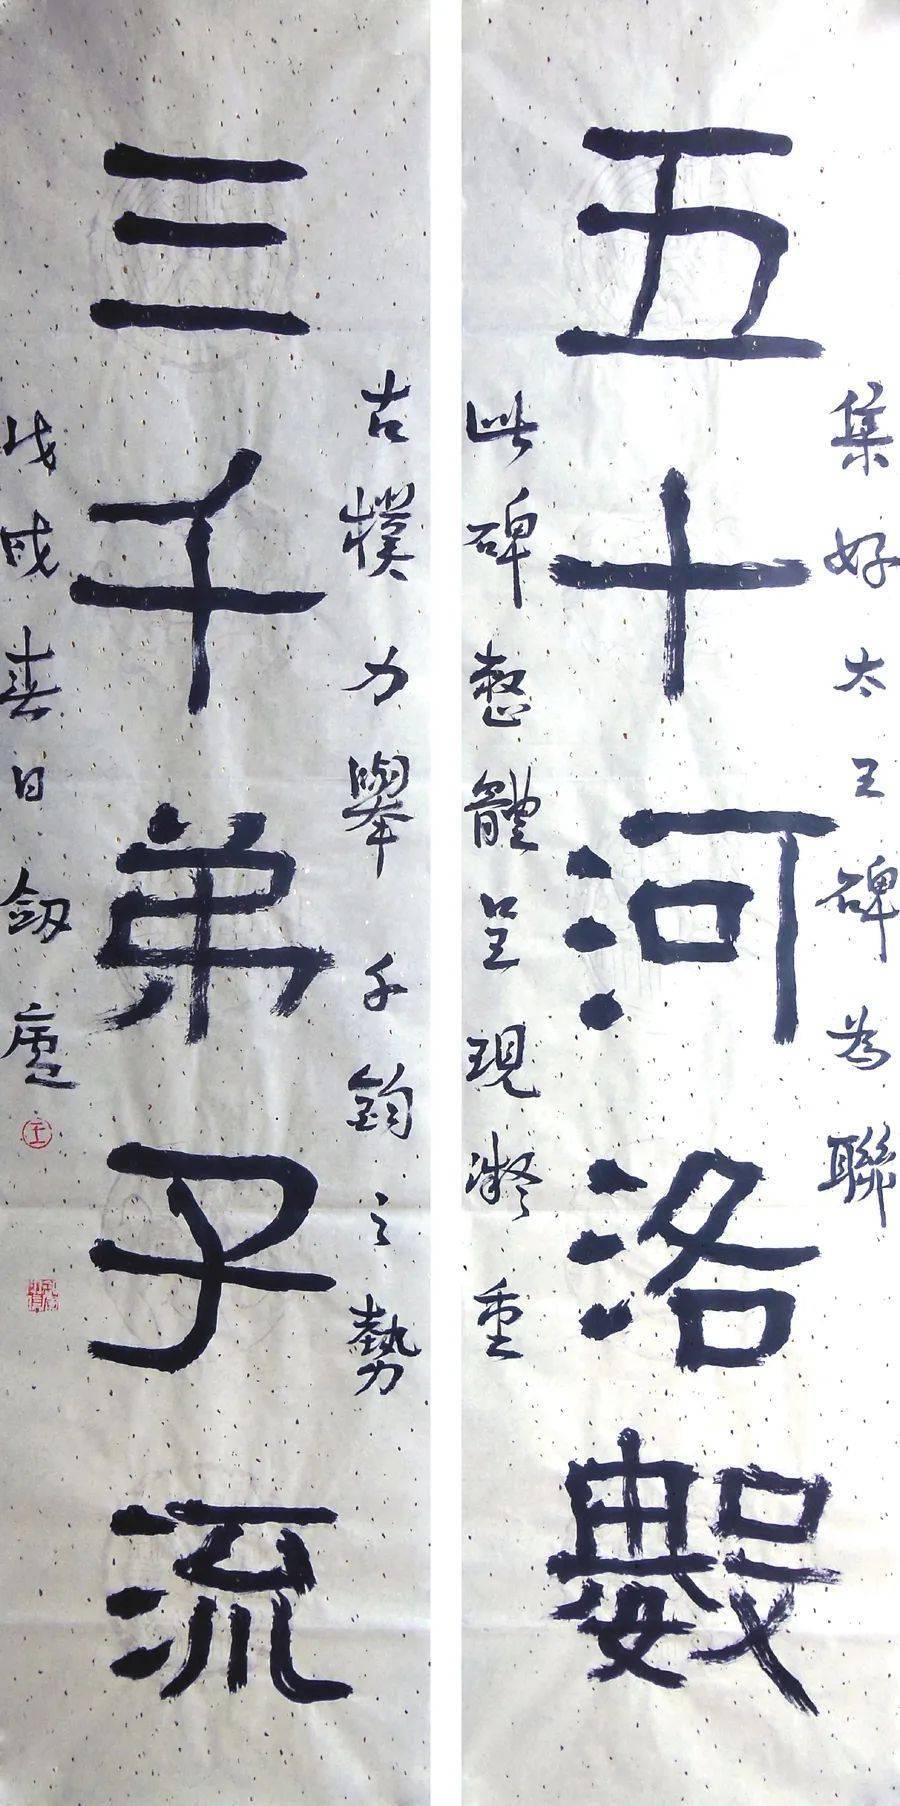 集好太王碑为聯
五十河洛數
此碑整體呈現凝重
古樸力舉千鈞之勢
三千弟子流
戊戌春日劔廬